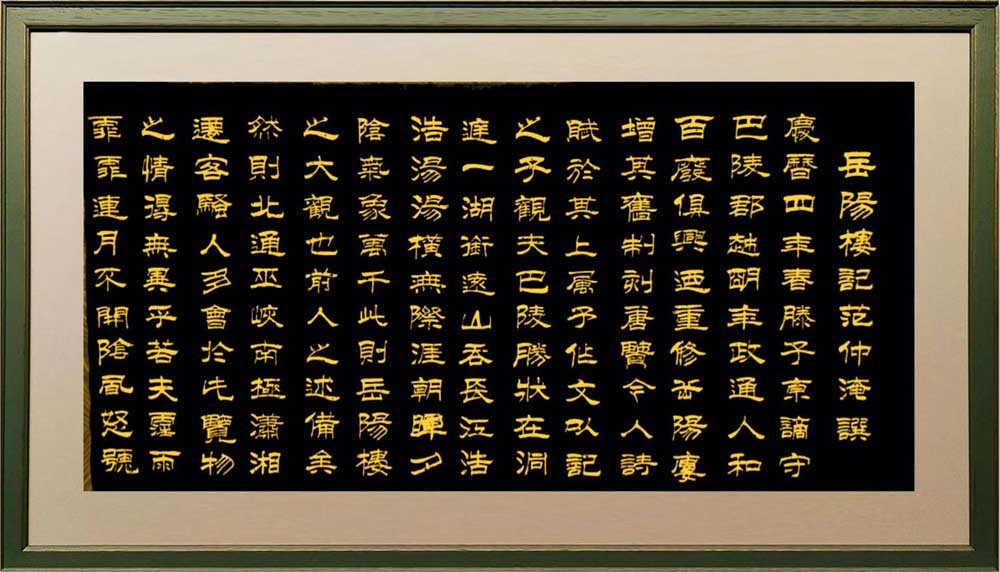 岳陽樓記范仲淹譔
慶曆四年春滕子京謫守
巴陵郡越明年政通人和
百廢俱興迺重修岳陽樓
增其舊制刻唐賢今人詩
賦於其上属予作文以記
之予觀夫巴陵勝狀在洞
庭一湖銜遠山吞長江浩
浩湯湯橫無際涯朝暉夕
陰氣象萬千此則岳陽樓
之大觀也前人之述備矣
然則北通巫峽南極瀟湘
遷客騷人多會於此覽物
之情得無異乎若夫霪雨
霏霏連月不開陰風怒號